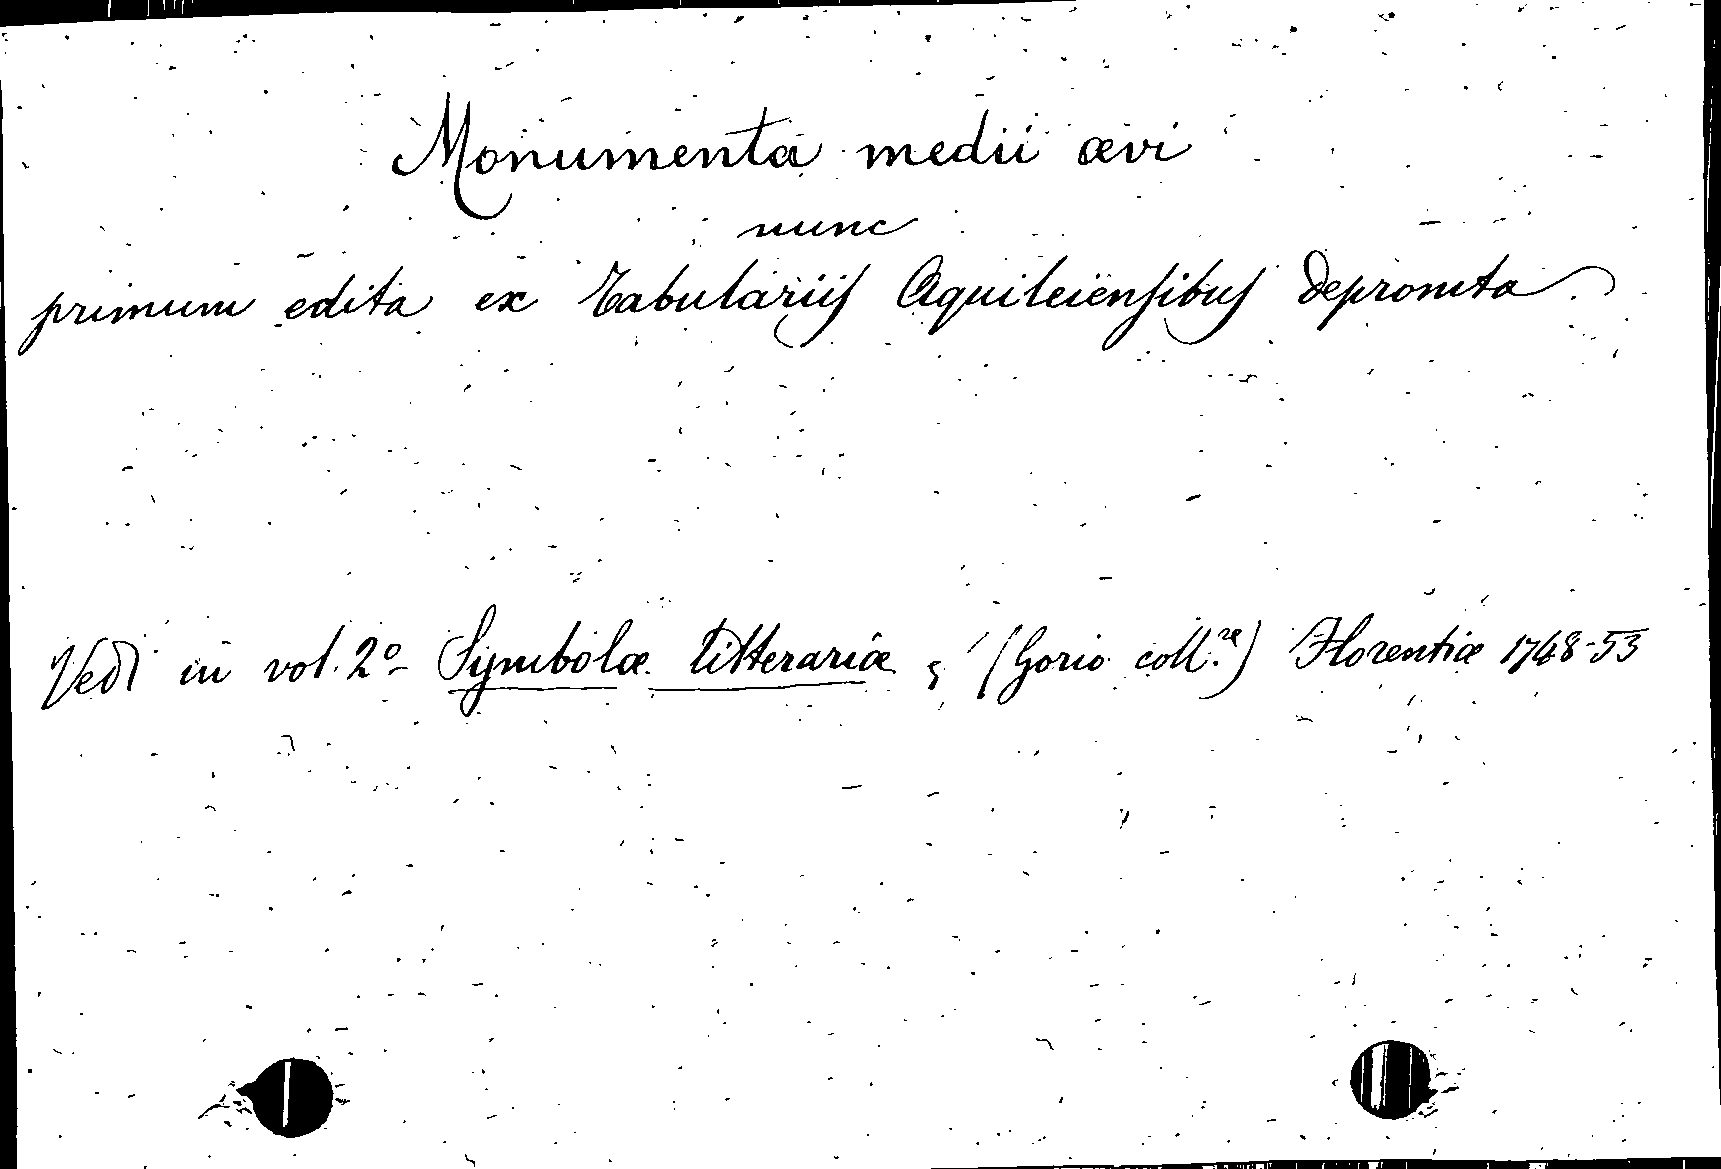 Monumenta medii ævi
nunc
primum edita ex Tabulariis Aquileiensibus depromta.
Vedi in vol. 2º Symbolæ litterariæ, (Gorio coll.re) Florentiæ 1748-53